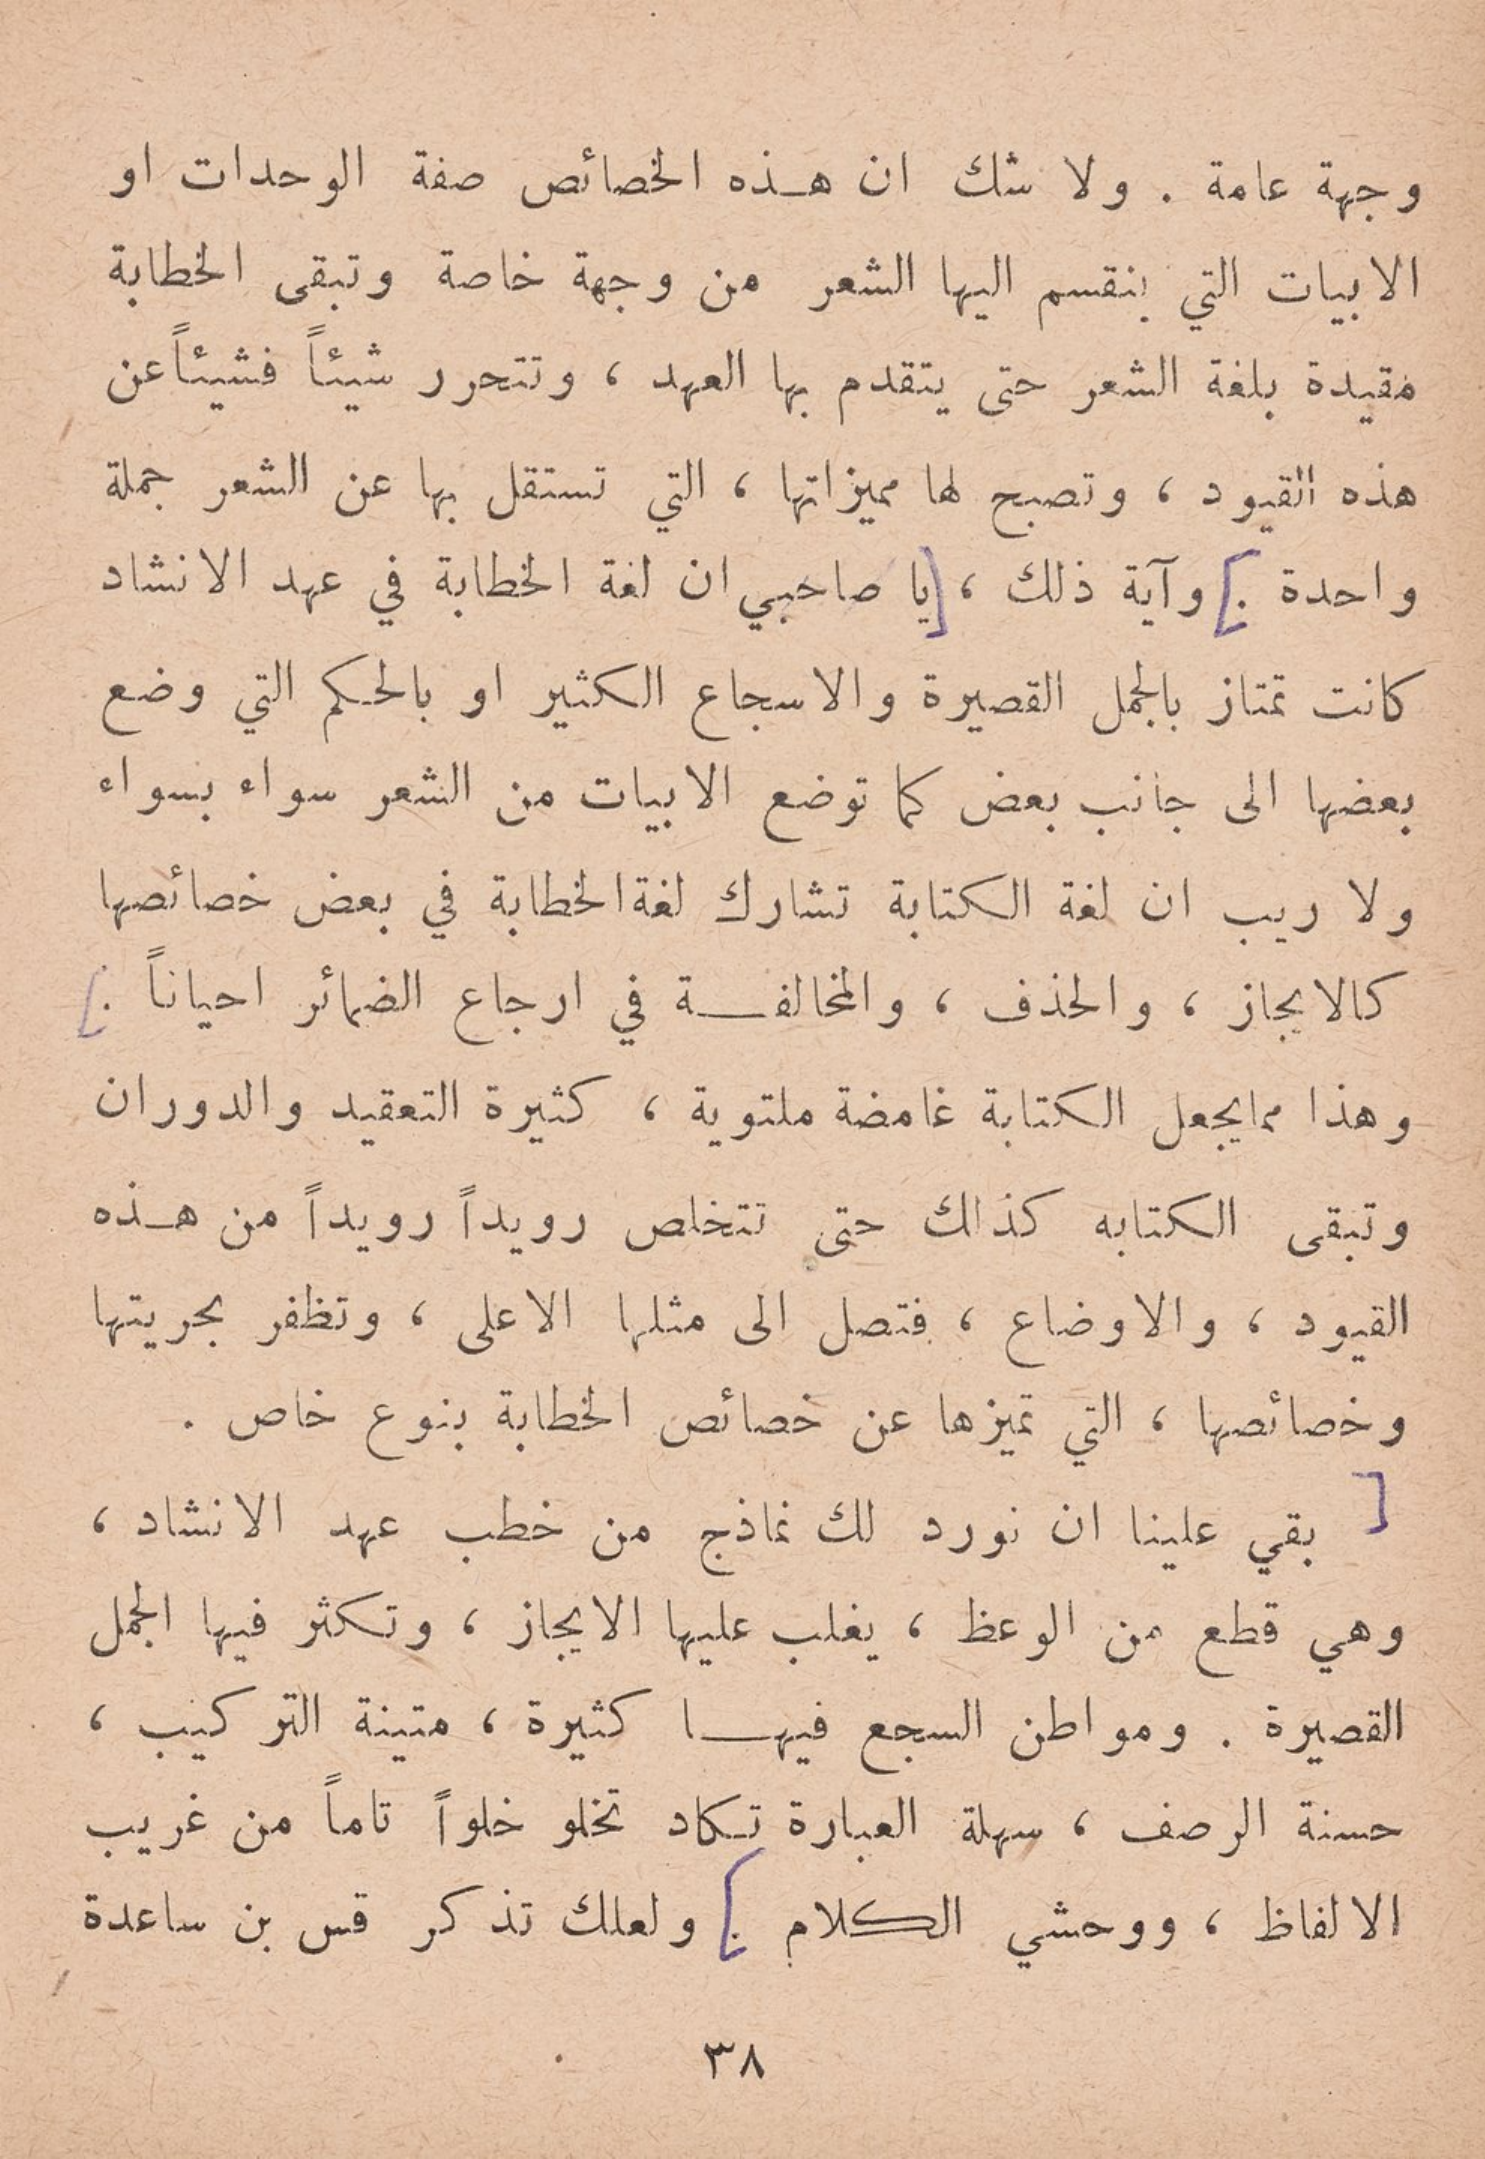 وجهة عامة . ولا شك ان هذه الخصائص صفة الوحدات او
الابيات التي ينقسم اليها الشعر من وجهة خاصة وتبقى الخطابة
مقيدة بلغة الشعر حتى يتقدم بها العهد ، وتتحرر شيئاً فشيئاً عن
هذه القيود ، وتصبح لها مميزاتها ، التي تستقل بها عن الشعر جملة
واحدة . [ وآية ذلك ، [ يا صاحبي ان لغة الخطابة في عهد الانشاد
كانت تمتاز بالجمل القصيرة والاسجاع الكثير او بالحكم التي وضع
بعضها الى جانب بعض كما توضع الابيات من الشعر سواء بسواء
ولا ريب ان لغة الكتابة تشارك لغة الخطابة في بعض خصائصها
كالايجاز ، والحذف ، والمخالفة في ارجاع الضمائر احياناً . [
وهذا مما يجعل الكتابة غامضة ملتوية ، كثيرة التعقيد والدوران
وتبقى الكتابه كذلك حتى تتخلص رويداً رويداً من هذه
القيود ، والاوضاع ، فتصل الى مثلها الاعلى ، وتظفر بحريتها
وخصائصها ، التي تميزها عن خصائص الخطابة بنوع خاص .
[ بقي علينا ان نورد لك نماذج من خطب عهد الانشاد ،
وهي قطع من الوعظ ، يغلب عليها الايجاز ، وتكثر فيها الجمل
القصيرة . ومواطن السجع فيها كثيرة ، متينة التركيب ،
حسنة الرصف ، سهلة العبارة تكاد تخلو خلواً تاماً من غريب
الالفاظ ، ووحشي الكلام . [ ولعلك تذكر قس بن ساعدة
٣٨